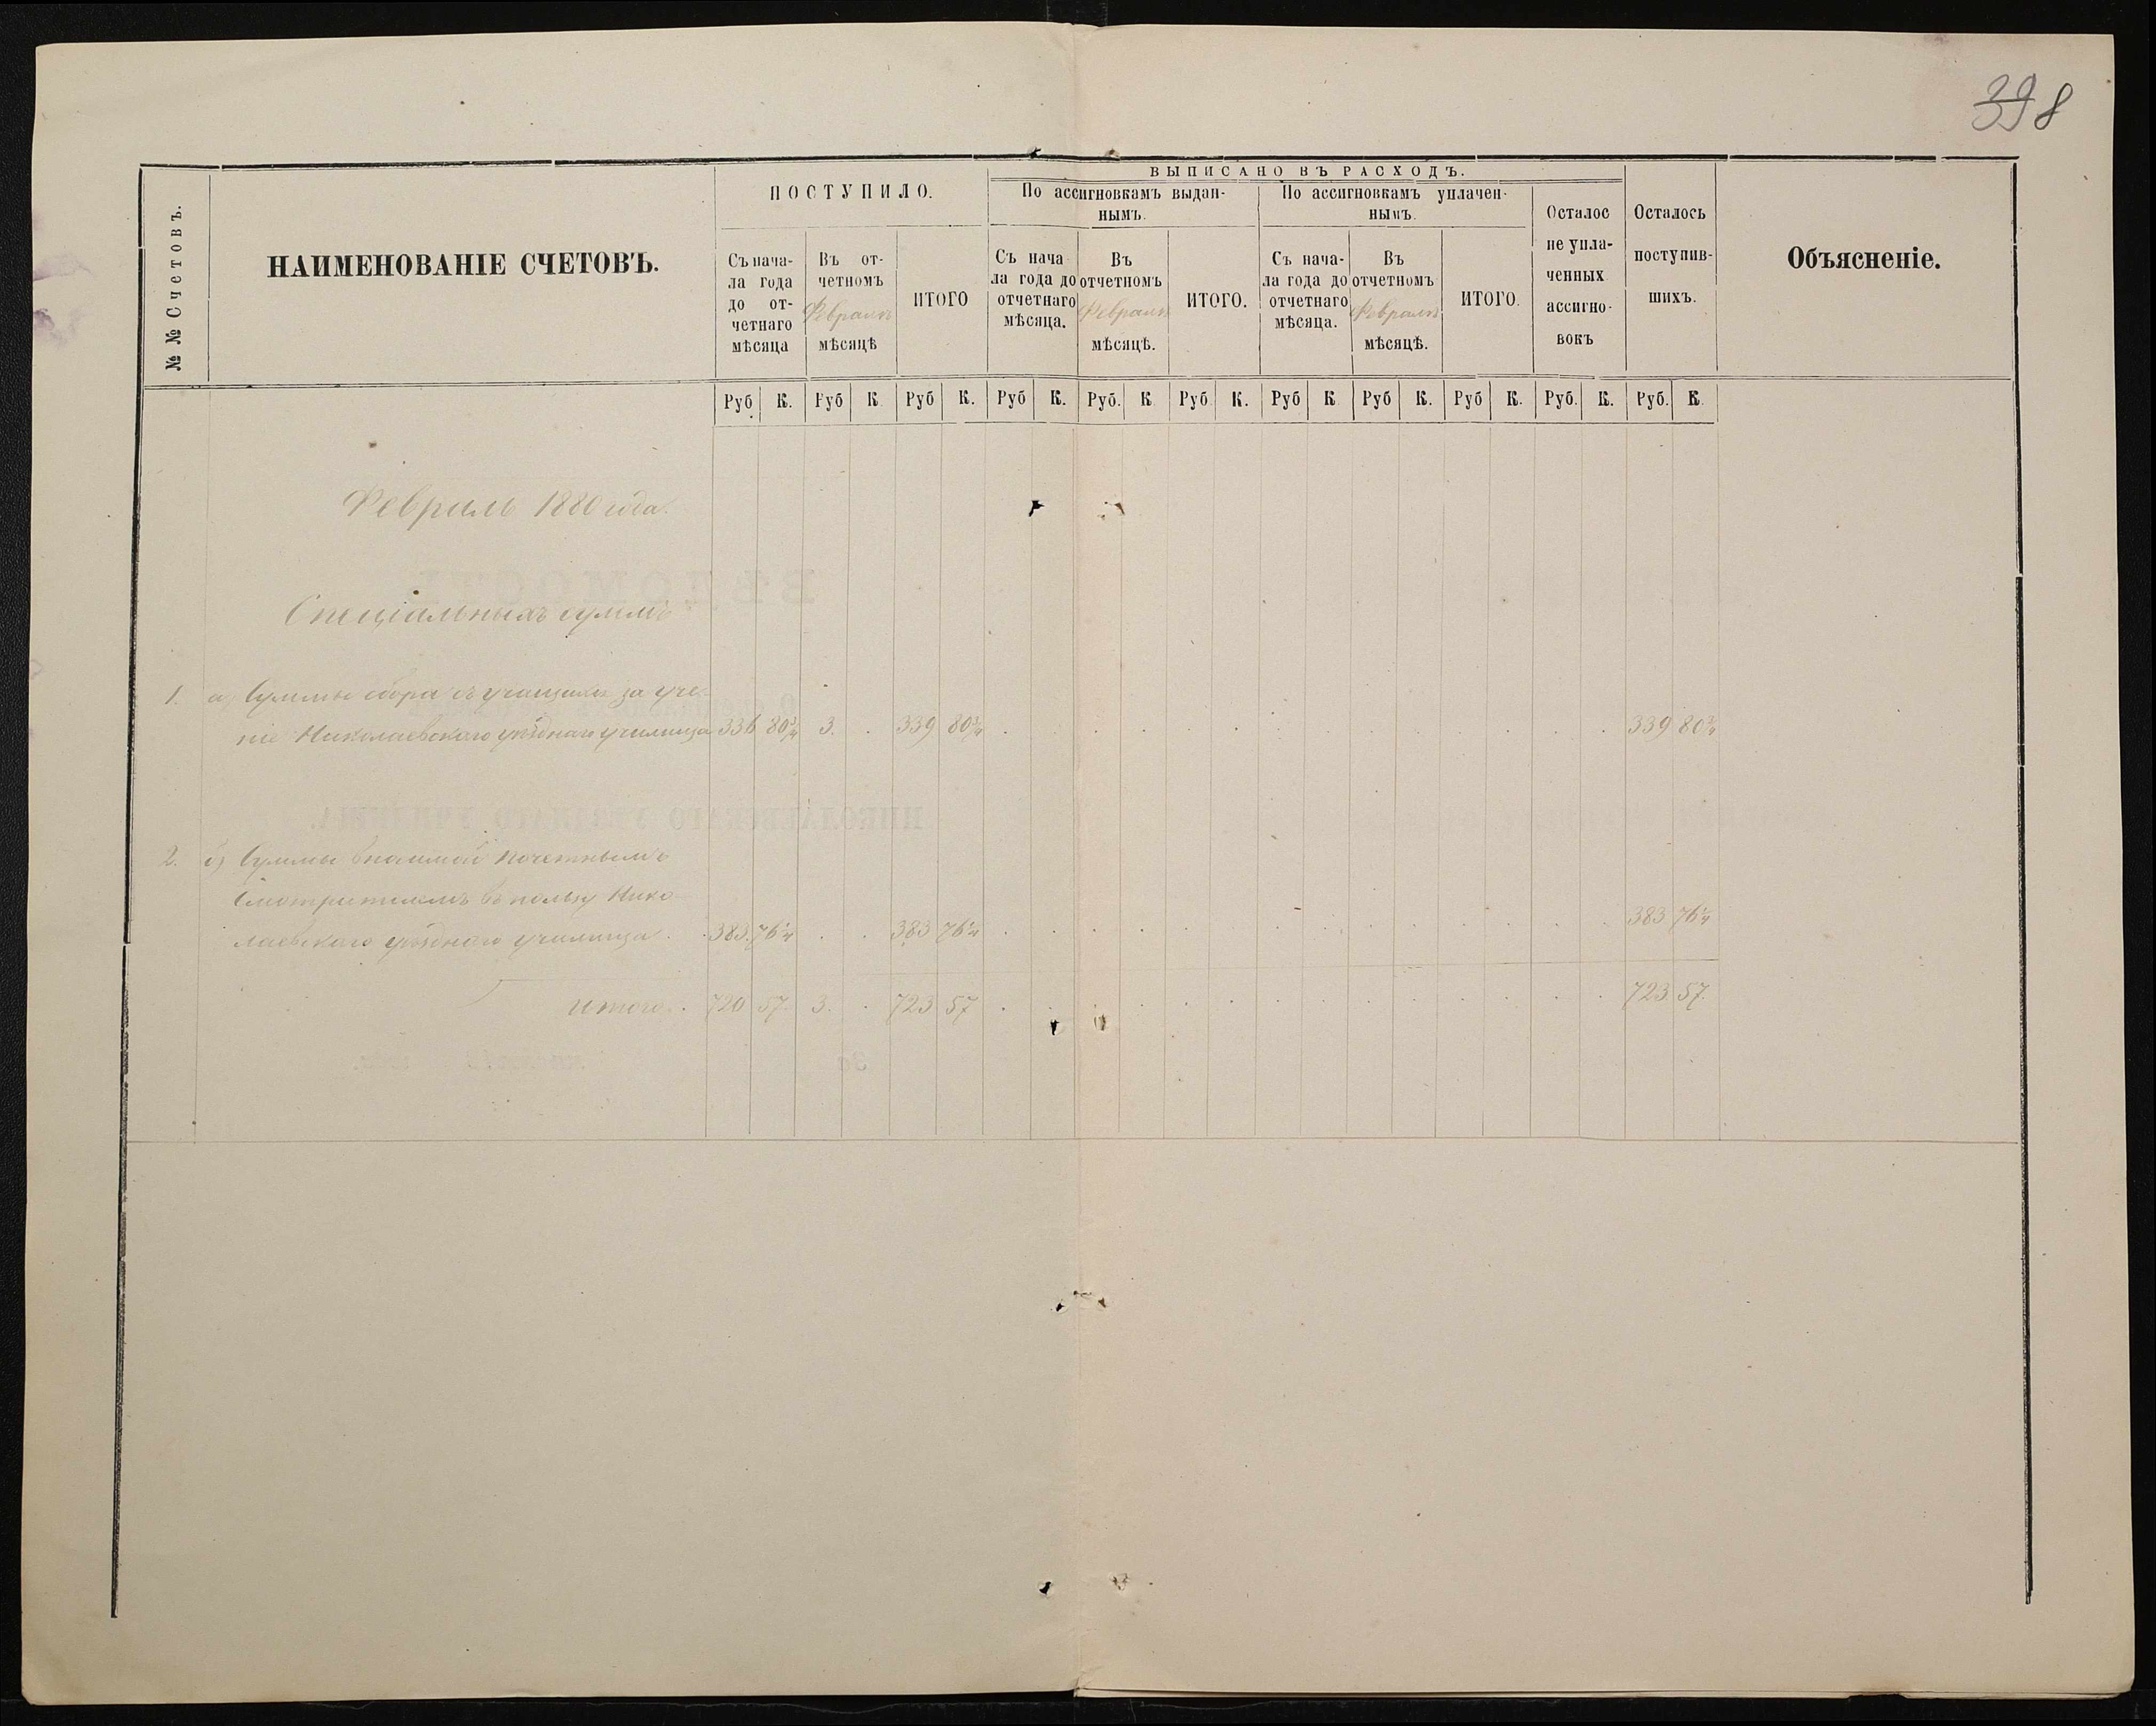 398
№ № Счетовъ.
НАИМЕНОВАНІЕ СЧЕТОВЪ.
ПОСТУПИЛО.
Съ нача-
ла года
до от-
четнаго
мѣсяца
Въ от-
четномъ
Февралѣ
мѣсяцѣ
ИТОГО
ВЫПИСАНО ВЪ РАСХОДЪ.
По ассигновкамъ выдан-
нымъ.
Съ нача
ла года до
отчетнаго
мѣсяца.
Въ
отчетномъ
Февралѣ
мѣсяцѣ.
ИТОГО.
По ассигновкамъ уплачен-
нымъ.
Съ нача-
ла года до
отчетнаго
мѣсяца.
Въ
отчетномъ
Февралѣ
мѣсяцѣ.
ИТОГО.
Осталос
не упла-
ченныхъ
ассигно-
вокъ
Осталось
поступив-
шихъ.
Объясненіе.
Руб К. Руб К Руб К. Руб К. Руб. К Руб К. Руб К Руб К. Руб К. Руб. К. Руб. К.
Февраль 1880 года.
Спеціальныхъ суммъ
1. а) Суммы сбора съ учащихся за уче-
ніе Николаевскаго уѣзднаго училища 336 80¾ 3. . 339 80¾ 339 80¾
2. б) Суммы вносимой Почетнымъ
Смотрителемъ въ пользу Нико
лаевскаго уѣзднаго училища. 383. 76¼ . . 383 76¼ 383 76¼
Итого. 720 57. 3. . 723 57 723 57.